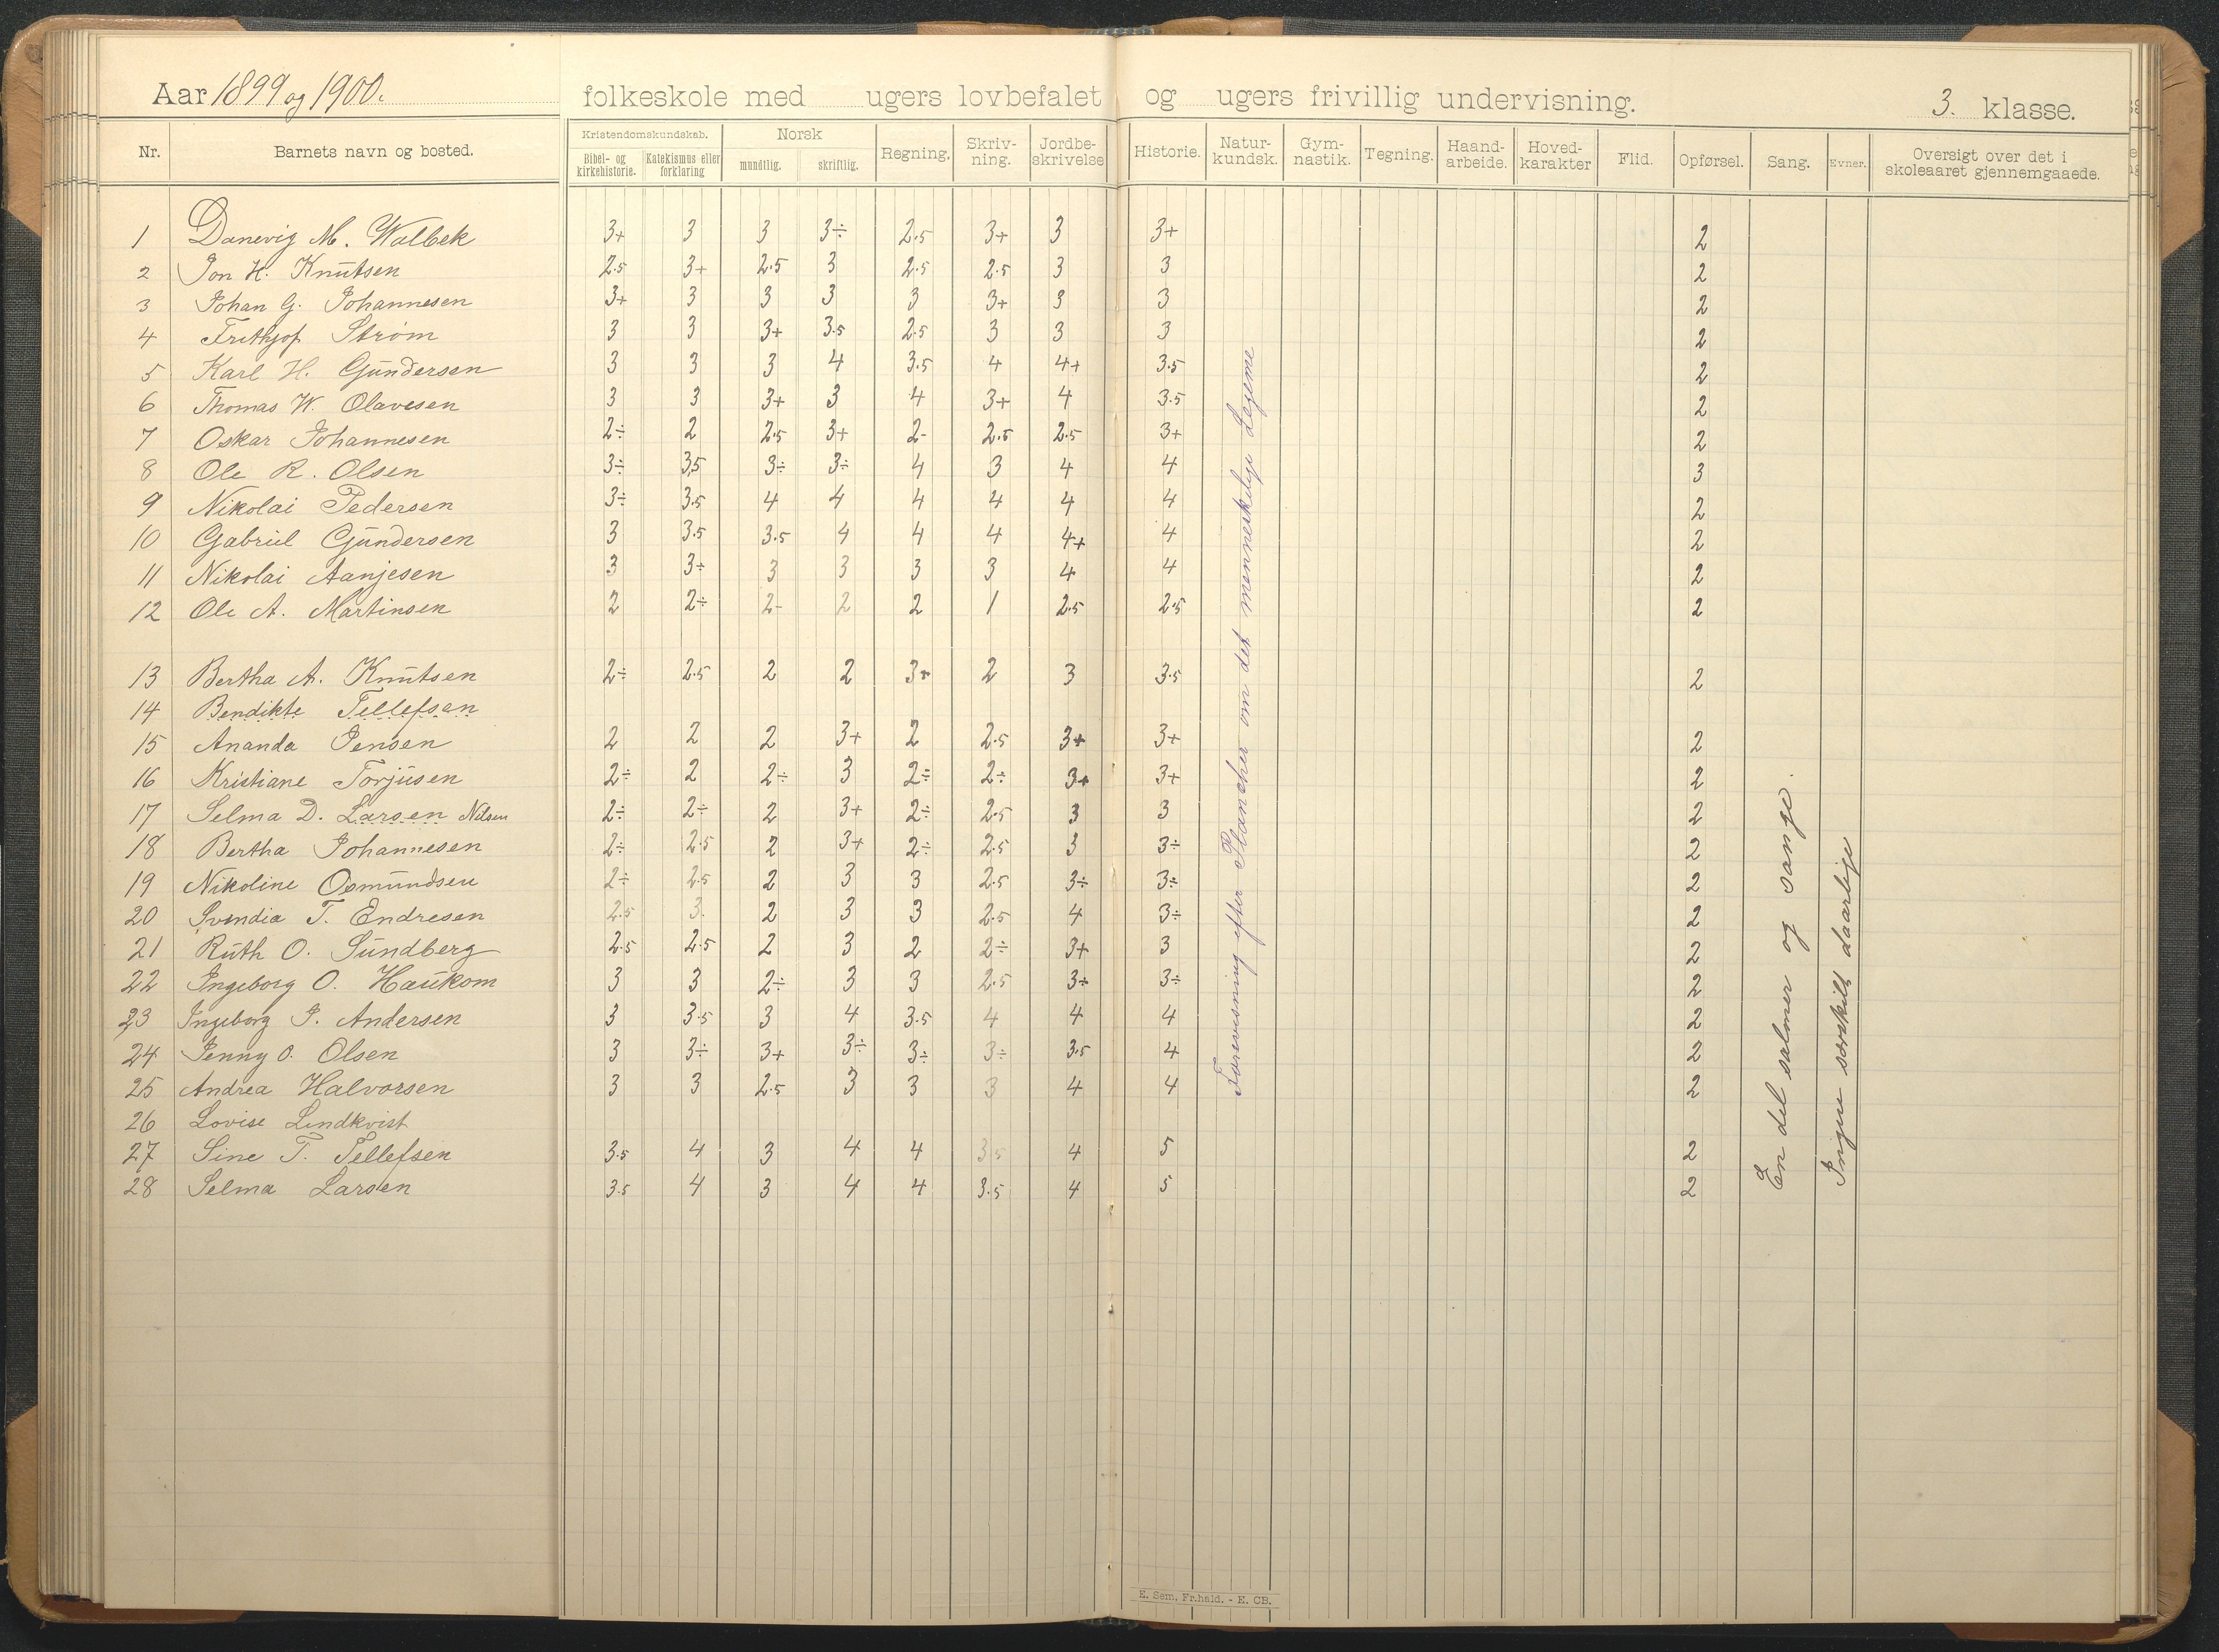 Aar 1899 og 1900. folkeskole med ugers lovbefalet og ugers frivillig undervisning. 3. klasse.
Nr. Barnets navn og bosted. Kristendomskundskab. Bibel- og kirkehistorie. Katekismus eller forklaring Norsk mundtlig. skriftlig. Regning. Skriv-ning. Jordbe-skrivelse Historie. Natur-kundsk. Gym-nastik. Tegning. Haand-arbeide. Hoved-karakter Flid. Opførsel. Sang. Evner. Oversigt over det i skoleaaret gjennemgaaede.
1 Danevig M. Walbek 3+ 3 3 3÷ 2.5 3+ 3 3+ 2
2 Jon K. Knutsen 2.5 3+ 2.5 3 2.5 2.5 3 3 2
3 Johan G. Johannesen 3+ 3 3 3 3 3+ 3 3 2
4 Frithjof Strøm 3 3 3+ 3.5 2.5 3 3 3 2
5 Karl H. Gundersen 3 3 3 4 3.5 4 4+ 3.5 2
6 Thomas W. Olavesen 3 3 3+ 3 4 3+ 4 3.5 2
7 Oskar Johannesen 2÷ 2 2.5 3+ 2- 2.5 2.5 3+ 2
8 Ole R. Olsen 3÷ 3,5 3÷ 3÷ 4 3 4 4 3
9 Nikolai Pedersen 3÷ 3.5 4 4 4 4 4 4 2
10 Gabriel Gundersen 3 3.5 3.5 4 4 4 4+ 4 2
11 Nikolai Aanjesen 3 3÷ 3 3 3 3 4 4 2
12 Ole A. Martinsen 2 2÷ 2- 2 2 1 2.5 2.5 2
13 Bertha A. Knutsen 2÷ 2.5 2 2 3+ 2 3 3.5 2
14 Bendikte Tellefsen
15 Ananda Jensen 2 2 2 3+ 2 2.5 3+ 3+ 2
16 Kristiane Torjusen 2÷ 2 2÷ 3 2÷ 2÷ 3+ 3+ 2
17 Selma D. Larsen Nilsen 2÷ 2÷ 2 3+ 2÷ 2.5 3 3 2
18 Bertha Johannesen 2÷ 2.5 2 3+ 2÷ 2.5 3 3÷ 2
19 Nikoline Osmundsen 2÷ 2.5 2 3 3 2.5 3÷ 3÷ 2
20 Svendia T. Endresen 2.5 3. 2 3 3 2.5 4 3÷ 2
21 Ruth O. Sundberg 2.5 2.5 2 3 2 2÷ 3+ 3 2
22 Ingeborg O. Haukom 3 3 2÷ 3 3 2.5 3÷ 3÷ 2
23 Ingeborg J. Andersen 3 3.5 3 4 3.5 4 4 4 2
24 Jenny O. Olsen 3 3÷ 3+ 3÷ 3÷ 3÷ 3.5 4 2
25 Andrea Halvorsen 3 3 2.5 3 3 3 4 4 2
26 Lovise Lindkvist
27 Sine T. Tellefsen 3.5 4 3 4 4 3.5 4 5 2
28 Selma Larsen 3.5 4 3 4 4 3.5 4 5 2
Forevisning efter Plancher om det menneskelige Legeme
En del salmer og sange.
Ingen særskilt daarlige
E. Sem. Fr.hald. - E. CB.